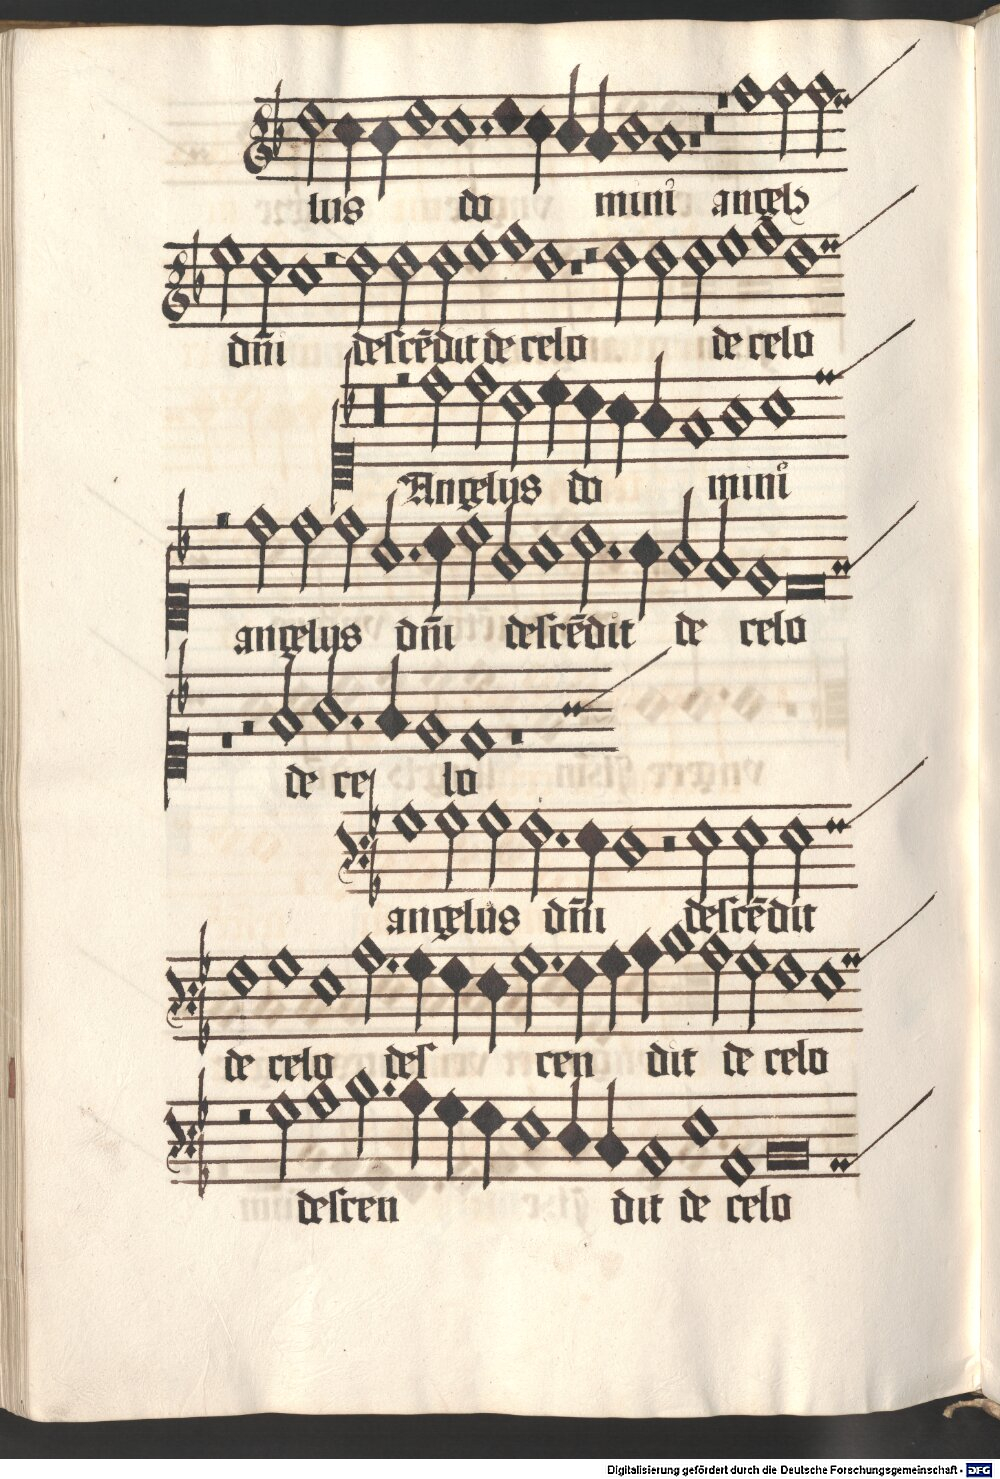 lus do mini angels
dn̄i descēdit de celo de celo
Angelus do mini
angelus dn̄i descēdit de celo
de ce lo
angelus dn̄i descēdit
de celo des cen dit de celo
descen dit de celo
Digitalisierung gefördert durch die Deutsche Forschungsgemeinschaft - DFG